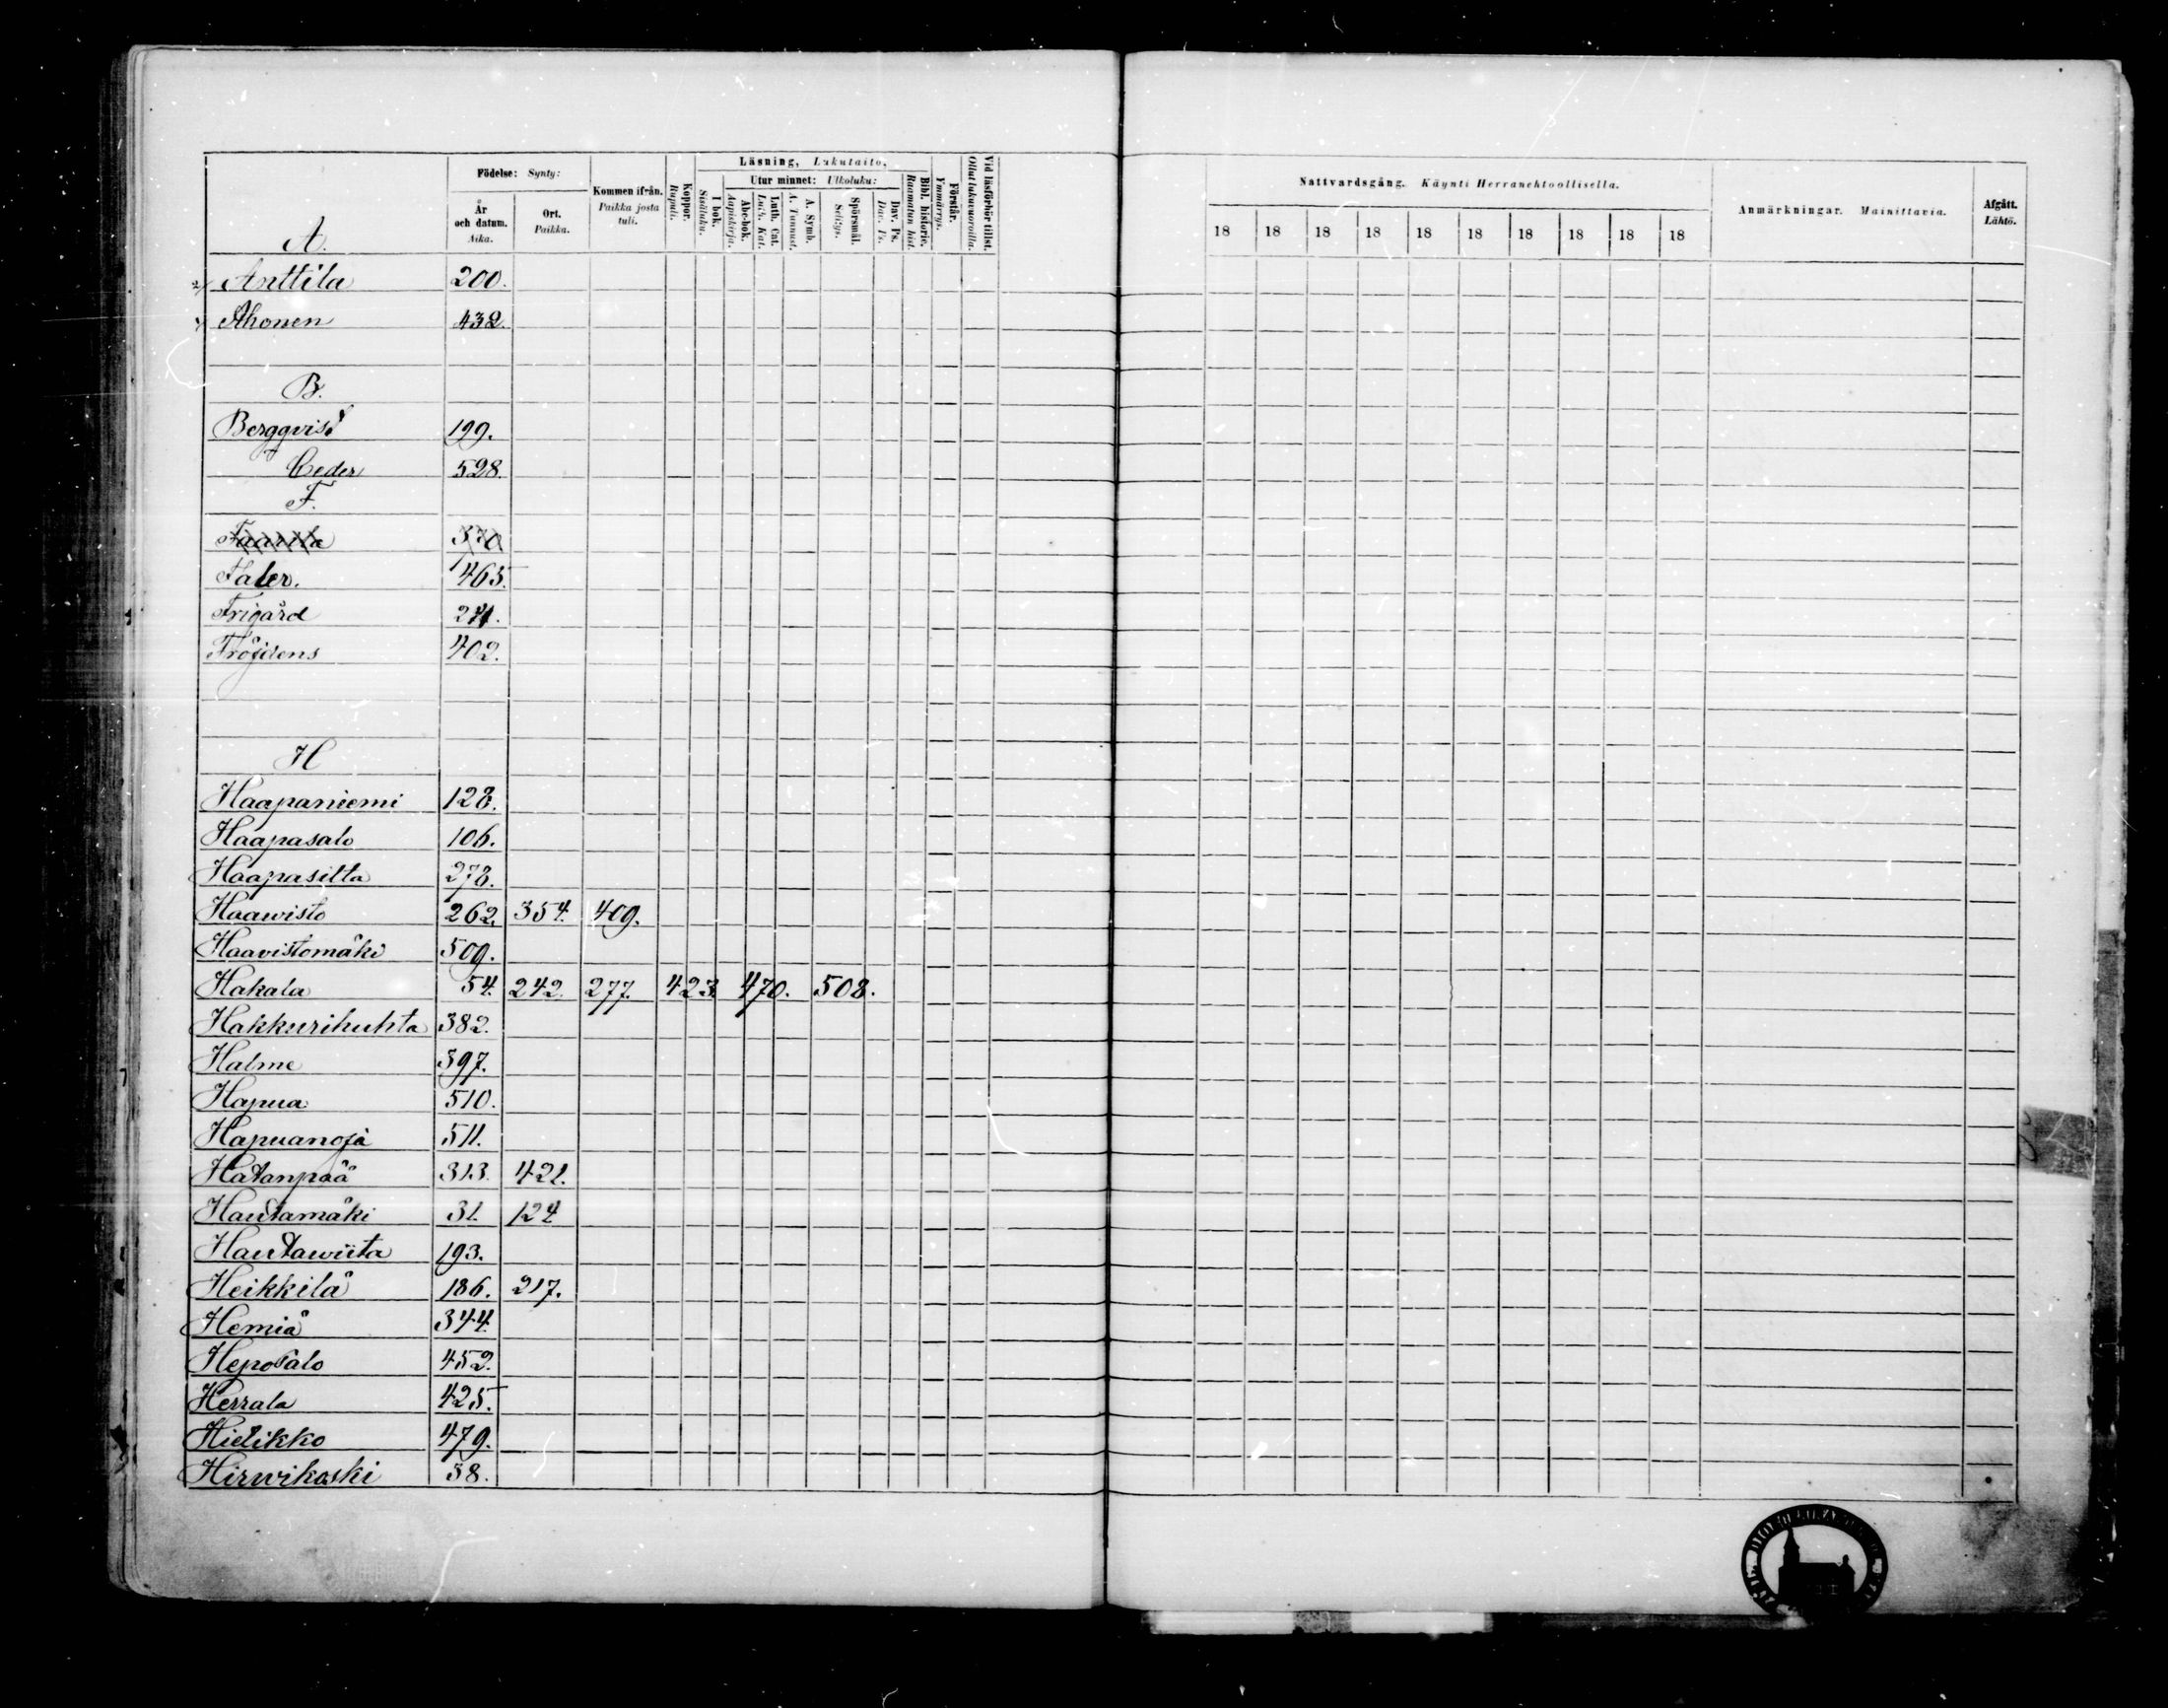 Födelse: Synty:
År och datum. Aika.
Ort. Paikka.
Kommen ifrån. Paikka josta tuli.
Koppor. Rupuli.
Läsning, Lukutaito,
I bok. Sisäluku.
Utur minnet: Ulkoluku:
Abc-bok. Aapiskirja.
Luth. Cat. Luth. Kat.
A. Symb. A. Tunnust.
Spörsmål. Selitys.
Dav. Ps. Dav. Ps.
Bibl. historie. Raamatun hist.
Förstår. Ymmärrys.
Vid läsförhör tillst. Ollut lukuvuoroilla.
A.
Anttila 200.
Ahonen 432.
B.
Bergqvist 199.
Ceder 528.
F.
Faarila 370
Faler. 465.
Frigård 271.
Fröjdens 402.
H
Haapaniemi 128.
Haapasalo 106.
Haapasilta 278.
Haawisto 262. 354. 409.
Haavistomäki 509.
Hakala 54. 242. 277. 423. 470. 508.
Hakkurihuhta 382.
Halme 397.
Hapua 510.
Hapuanoja 511.
Hatanpää 313. 421.
Hautamäki 31. 124.
Hautawiita 193.
Heikkilä 186. 217.
Hemiä 344.
Heposalo 452.
Herrala 425.
Hietikko 479.
Hirwikoski 38.
Nattvardsgång. Käynti Herranehtoollisella.
18 18 18 18 18 18 18 18 18 18
Anmärkningar. Mainittavia.
Afgått. Lähtö.